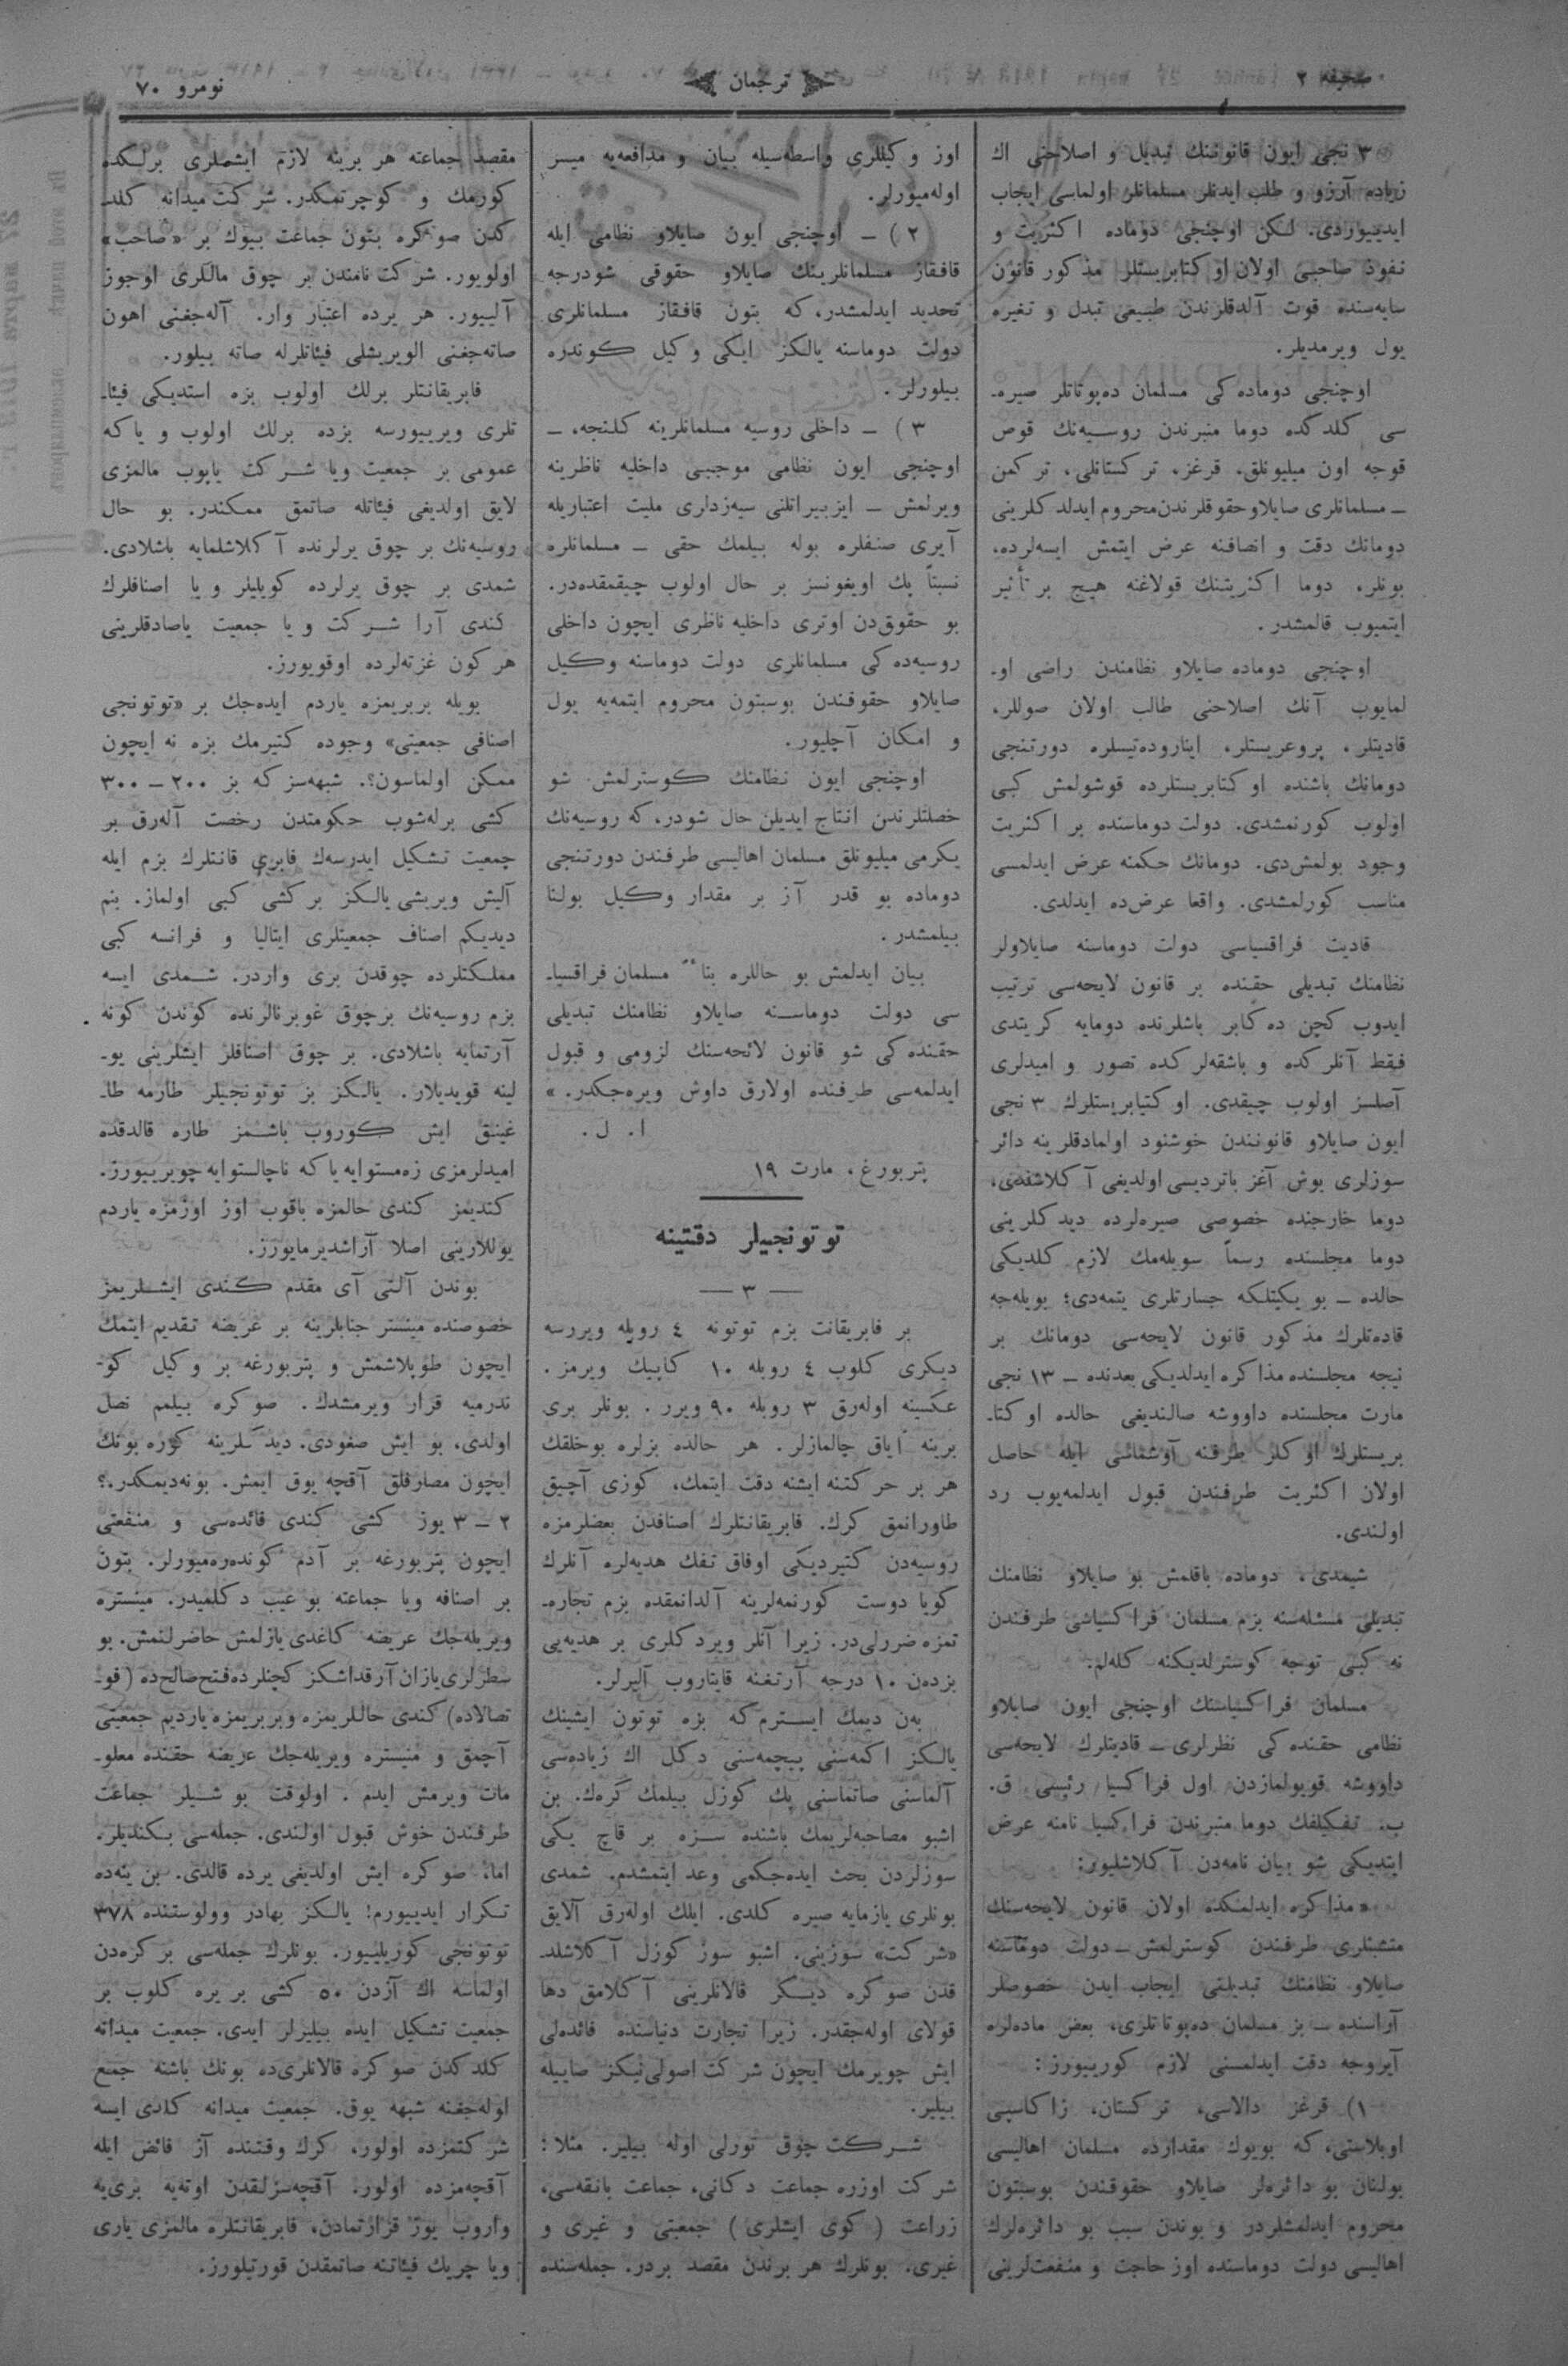 صحیفه ٢
ترجمان
نومرو ٧٠
٣ نجی ایون قانوننك تبدیل و اصلاحنی اك
زیاده آرزو و طلب ایدنلر مسلمانلر اولماسی ایجاب
ایدییوردی. لکن اوچنجی دوماده اکثریت و
نفوذ صاحبی اولان اوکتابریستلر مذکور قانون
سایه‌سنده قوت آلدقلرندن طبیعی تبدل و تغیره
یول ویرمدیلر.
اوچنجی دوماده‌کی مسلمان ده‌پوتاتلر صیره‌ـ
سی کلدکده دوما منبرندن روسیه‌نك قوص
قوجه اون میلیونلق، قرغز، ترکستانلی، ترکمن
ـ مسلمانلری صایلاو حقوقلرندن محروم ایدلدکلرینی
دومانك دقت و انصافنه عرض ایتمش ایسه‌لرده،
بونلر، دوما اکثریتنك قولاغنه هیچ بر تأثیر
ایتمیوب قالمشدر.
اوچنجی دوماده صایلاو نظامندن راضی اوـ
لمایوب آنك اصلاحنی طالب اولان صوللر،
قادیتلر، پروغریستلر، ایناروده‌تیسلره دورتنجی
دومانك باشنده اوکتابریستلرده قوشولمش کبی
اولوب کورنمشدی. دولت دوماسنده بر اکثریت
وجود بولمش‌دی. دومانك حکمنه عرض ایدلمسی
مناسب کورلمشدی. واقعا عرض‌ده ایدلدی.
قادیت فراقسیاسی دولت دوماسنه صایلاولر
نظامنك تبدیلی حقنده بر قانون لایحه‌سی ترتیب
ایدوب کچن ده‌کابر باشلرنده دومایه کریتدی
فقط آنلرکده و باشقه‌لرکده تصور و امیدلری
آصلسز اولوب چیقدی. اوکتیابریستلرك ٣ نجی
ایون صایلاو قانونندن خوشنود اولمادقلرینه دائر
سوزلری بوش آغز باتردیسی اولدیغی آکلاشلدی،
دوما خارجنده خصوصی صیره‌لرده دیدکلرینی
دوما مجلسنده رسماً سویله‌مك لازم کلدیکی
حالده ـ بو یکیتلکه جسارتلری یتمه‌دی؛ بویله‌جه
قاده‌تلرك مذکور قانون لایحه‌سی دومانك بر
نیجه مجلسنده مذاکره ایدلدیکی بعدنده ـ ١٣ نجی
مارت مجلسنده داووشه صالندیغی حالده اوکتاـ
بریستلرك اوکلر طرفنه آوشماسی ایله حاصل
اولان اکثریت طرفندن قبول ایدلمه‌یوب رد
اولندی.
شیمدی، دوماده باقلمش بو صایلاو نظامنك
تبدیلی مسئله‌سنه بزم مسلمان فراکسیاسی طرفندن
نه کبی توجه کوسترلدیکنه کله‌لم.
مسلمان فراکسیاسنك اوچنجی ایون صایلاو
نظامی حقنده‌کی نظرلری ـ قادیتلرك لایحه‌سی
داووشه قویولمازدن اول فراکسیا رئیسی ق.
ب. تفکیلفك دوما منبرندن فراکسیا نامنه عرض
ایتدیکی شو بیان نامه‌دن آکلاشلیور:
«مذاکره ایدلمکده اولان قانون لایحه‌سنك
متشبثلری طرفندن کوسترلمش ـ دولت دوماسنه
صایلاو نظامنك تبدیلنی ایجاب ایدن خصوصلر
آراسنده ـ بز مسلمان ده‌پوتاتلری، بعض ماده‌لره
آیروجه دقت ایدلمسنی لازم کوریيورز:
١) قرغز دالاسی، ترکستان، زاکاسپی
اوبلاستی، که بویوك مقدارده مسلمان اهالیسی
بولنان بو دائره‌لر صایلاو حقوقندن بوسبتون
محروم ایدلمشلردر و بوندن سبب بو دائره‌لرك
اهالیسی دولت دوماسنده اوز حاجت و منفعت‌لرینی
اوز وکیللری واسطه‌سیله بیان و مدافعه‌یه میسر
اوله‌میورلر.
٢) ـ اوچنجی ایون صایلاو نظامی ایله
قافقاز مسلمانلرینك صایلاو حقوقی شودرجه
تحدید ایدلمشدر، که بتون قافقاز مسلمانلری
دولت دوماسنه یالکز ایکی وکیل کوندره
بیلورلر.
٣) ـ داخلی روسیه مسلمانلرینه کلنجه، ـ
اوچنجی ایون نظامی موجبی داخلیه ناظرینه
ویرلمش ـ ایزبیراتلنی سیه‌زدلری ملیت اعتباریله
آیری صنفلره بوله بیلمك حقی ـ مسلمانلره
نسبتاً پك اویغونسز بر حال اولوب چیقمقده‌در.
بو حقوق‌دن اوتری داخلیه ناظری ایچون داخلی
روسیه‌ده‌کی مسلمانلری دولت دوماسنه وکیل
صایلاو حقوقندن بوسبتون محروم ایتمه‌یه یول
و امکان آچلیور.
اوچنجی ایون نظامنك کوسترلمش شو
خصلتلرندن انتاج ایدیلن حال شودر، که روسیه‌نك
یکرمی میلیونلق مسلمان اهالیسی طرفندن دورتنجی
دوماده بو قدر آز بر مقدار وکیل بولنا
بیلمشدر.
بیان ایدلمش بو حاللره بناءً مسلمان فراقسیاـ
سی دولت دوماسنه صایلاو نظامنك تبدیلی
حقنده‌کی شو قانون لائحه‌سنك لزومی و قبول
ایدلمه‌سی طرفنده اولارق داوش ویره‌جکدر.»
ا. ل.
پتربورغ، مارت ١٩
توتونجیلر دقتینه
— ٣ —
بر فابریقانت بزم توتونه ٤ روبله ویررسه
دیکری کلوب ٤ روبله ١٠ کاپیك ویرمز.
عکسینه اوله‌رق ٣ روبله ٩٠ ویرر. بونلر بری
برینه آیاق چالمازلر. هر حالده بزلره بو خلقك
هر بر حرکتنه ایشنه دقت ایتمك، کوزی آچیق
طاورانمق کرك. فابریقانتلرك اصنافدن بعضلرمزه
روسیه‌دن کتیردیکی اوفاق تفك هدیه‌لره آنلرك
کویا دوست کورنمه‌لرینه آلدانمقده بزم تجاره‌ـ
تمزه ضررلی‌در. زیرا آنلر ویردکلری بر هدیه‌یی
بزدەن ١٠ درجه آرتغنه قایتاروب آلیرلر.
بەن دیمك ایسترم که بزه توتون ایشینك
یالکز اکمه‌سنی بیچمه‌سنی دکل اك زیاده‌سی
آلماسنی صاتماسنی پك کوزل بیلمك کره‌ك. بن
اشبو مصاحبه‌لریمك باشنده سزه بر قاچ یکی
سوزلردن بحث ایده‌جکمی وعد ایتمشدم. شمدی
بونلری یازمایه صیره کلدی. ایلك اوله‌رق آلایق
«شرکت» سوزینی. اشبو سوز کوزل آکلاشلدـ
قدن صوکره دیکر قالانلرینی آکلامق دها
قولای اوله‌جقدر. زیرا تجارت دنیاسنده فائده‌لی
ایش چویرمك ایچون شرکت اصولی نیکز صاییله
بیلیر.
شرکت چوق تورلی اوله بیلیر. مثلا:
شرکت اوزره جماعت دکانی، جماعت بانقه‌سی،
زراعت (کوی ایشلری) جمعیتی و غیری و
غیری. بونلرك هر برندن مقصد بردر. جمله‌سنده
مقصد جماعته هر برینه لازم ایشملری برلکده
کورمك و کوچرتمکدر. شرکت میدانه کلدـ
کدن صوکره بتون جماعت بیوك بر «صاحب»
اولویور. شرکت نامندن بر چوق ماللری اوجوز
آلییور. هر یرده اعتبار وار. آله‌جغنی اهون
صاته‌جغنی الویریشلی فیئاتلرله صاته بیلور.
فابریقانتلر برلك اولوب بزه استدیکی فیئاـ
تلری ویرییورسه بزده برلك اولوب و یاکه
عمومی بر جمعیت ویا شرکت یاپوب مالمزی
لایق اولدیغی فیئاتله صاتمق ممکندر. بو حال
روسیه‌نك بر چوق یرلرنده آکلاشلمایه باشلادی.
شمدی بر چوق یرلرده کویلیلر و یا اصنافلرك
کندی آرا شرکت و یا جمعیت یاصادقلرینی
هر کون غزته‌لرده اوقویورز.
بویله بربریمزه یاردم ایده‌جك بر «توتونجی
اصنافی جمعیتی» وجوده کتیرمك بزه نه ایچون
ممکن اولماسون؟. شبهه‌سز که بز ٢٠٠ ـ ٣٠٠
کشی برله‌شوب حکومتدن رخصت آله‌رق بر
جمعیت تشکیل ایدرسه‌ك فابری قانتلرك بزم ایله
آلیش ویریشی یالکز بر کشی کبی اولماز. بنم
دیدیکم اصناف جمعیتلری ایتالیا و فرانسه کبی
مملکتلرده چوقدن بری واردر. شمدی ایسه
بزم روسیه‌نك برچوق غوبرنالرنده کوندن کونه
آرتمایه باشلادی. بر چوق اصنافلر ایشلرینی یوـ
لینه قویدیلار. یالکز بز توتونجیلر طارمه طاـ
غینق ایش کوروب باشمز طاره قالدقده
امیدلرمزی زه‌مستوایه یاکه ناچالستوایه چویرییورز.
کندیمز کندی حالمزه باقوب اوز اوزمزه یاردم
یوللارینی اصلا آراشدیرمایورز.
بوندن آلتی آی مقدم کندی ایشلریمز
خصوصنده مینستر جنابلرینه بر عریضه تقدیم ایتمك
ایچون طوپلاشمش و پتربورغه بر وکیل کوـ
ندرمیه قرار ویرمشدك. صوکره بیلمم نصل
اولدی، بو ایش صغودی. دیدکلرینه کوره بونك
ایچون مصارفلق آقچه یوق ایمش. بو نه‌دیمکدر.؟
٢ ـ ٣ یوز کشی کندی فائده‌سی و منفعتی
ایچون پتربورغه بر آدم کونده‌ره‌میورلر. بتون
بر اصنافه ویا جماعته بو عیب دکلمیدر. مینستره
ویریله‌جك عریضه کاغدی یازلمش حاضرلنمش. بو
سطرلری یازان آرقداشکز کچنلرده فتح صالح‌ده (قوـ
تصالاده) کندی حاللریمزه و بربریمزه یاردیم جمعیتی
آچمق و منیستره ویریله‌جك عریضه حقنده معلوـ
مات ویرمش ایدم. اولوقت بو شیلر جماعت
طرفندن خوش قبول اولندی. جمله‌سی بکندیلر.
اما، صوکره ایش اولدیغی یرده قالدی. بن ینه‌ده
تکرار ایدییورم: یالکز بهادر وولوستنده ٣٧٨
توتونجی کوریلییور. بونلرك جمله‌سی بر کره‌دن
اولماسه اك آزدن ٥٠ کشی بر یره کلوب بر
جمعیت تشکیل ایده بیلیرلر ایدی. جمعیت میدانه
کلدکدن صوکره قالانلری‌ده بونك باشنه جمع
اوله‌جغنه شبهه یوق. جمعیت میدانه کلدی ایسه
شرکتمزده اولور، کرك وقتنده آز فائض ایله
آقچه‌مزده اولور. آقچه‌سزلقدن اوته‌یه بری‌یه
واروب یوز قزارتمادن، فابریقانتلره مالمزی یاری
ویا چریك فیئاتنه صاتمقدن قورتیلورز.